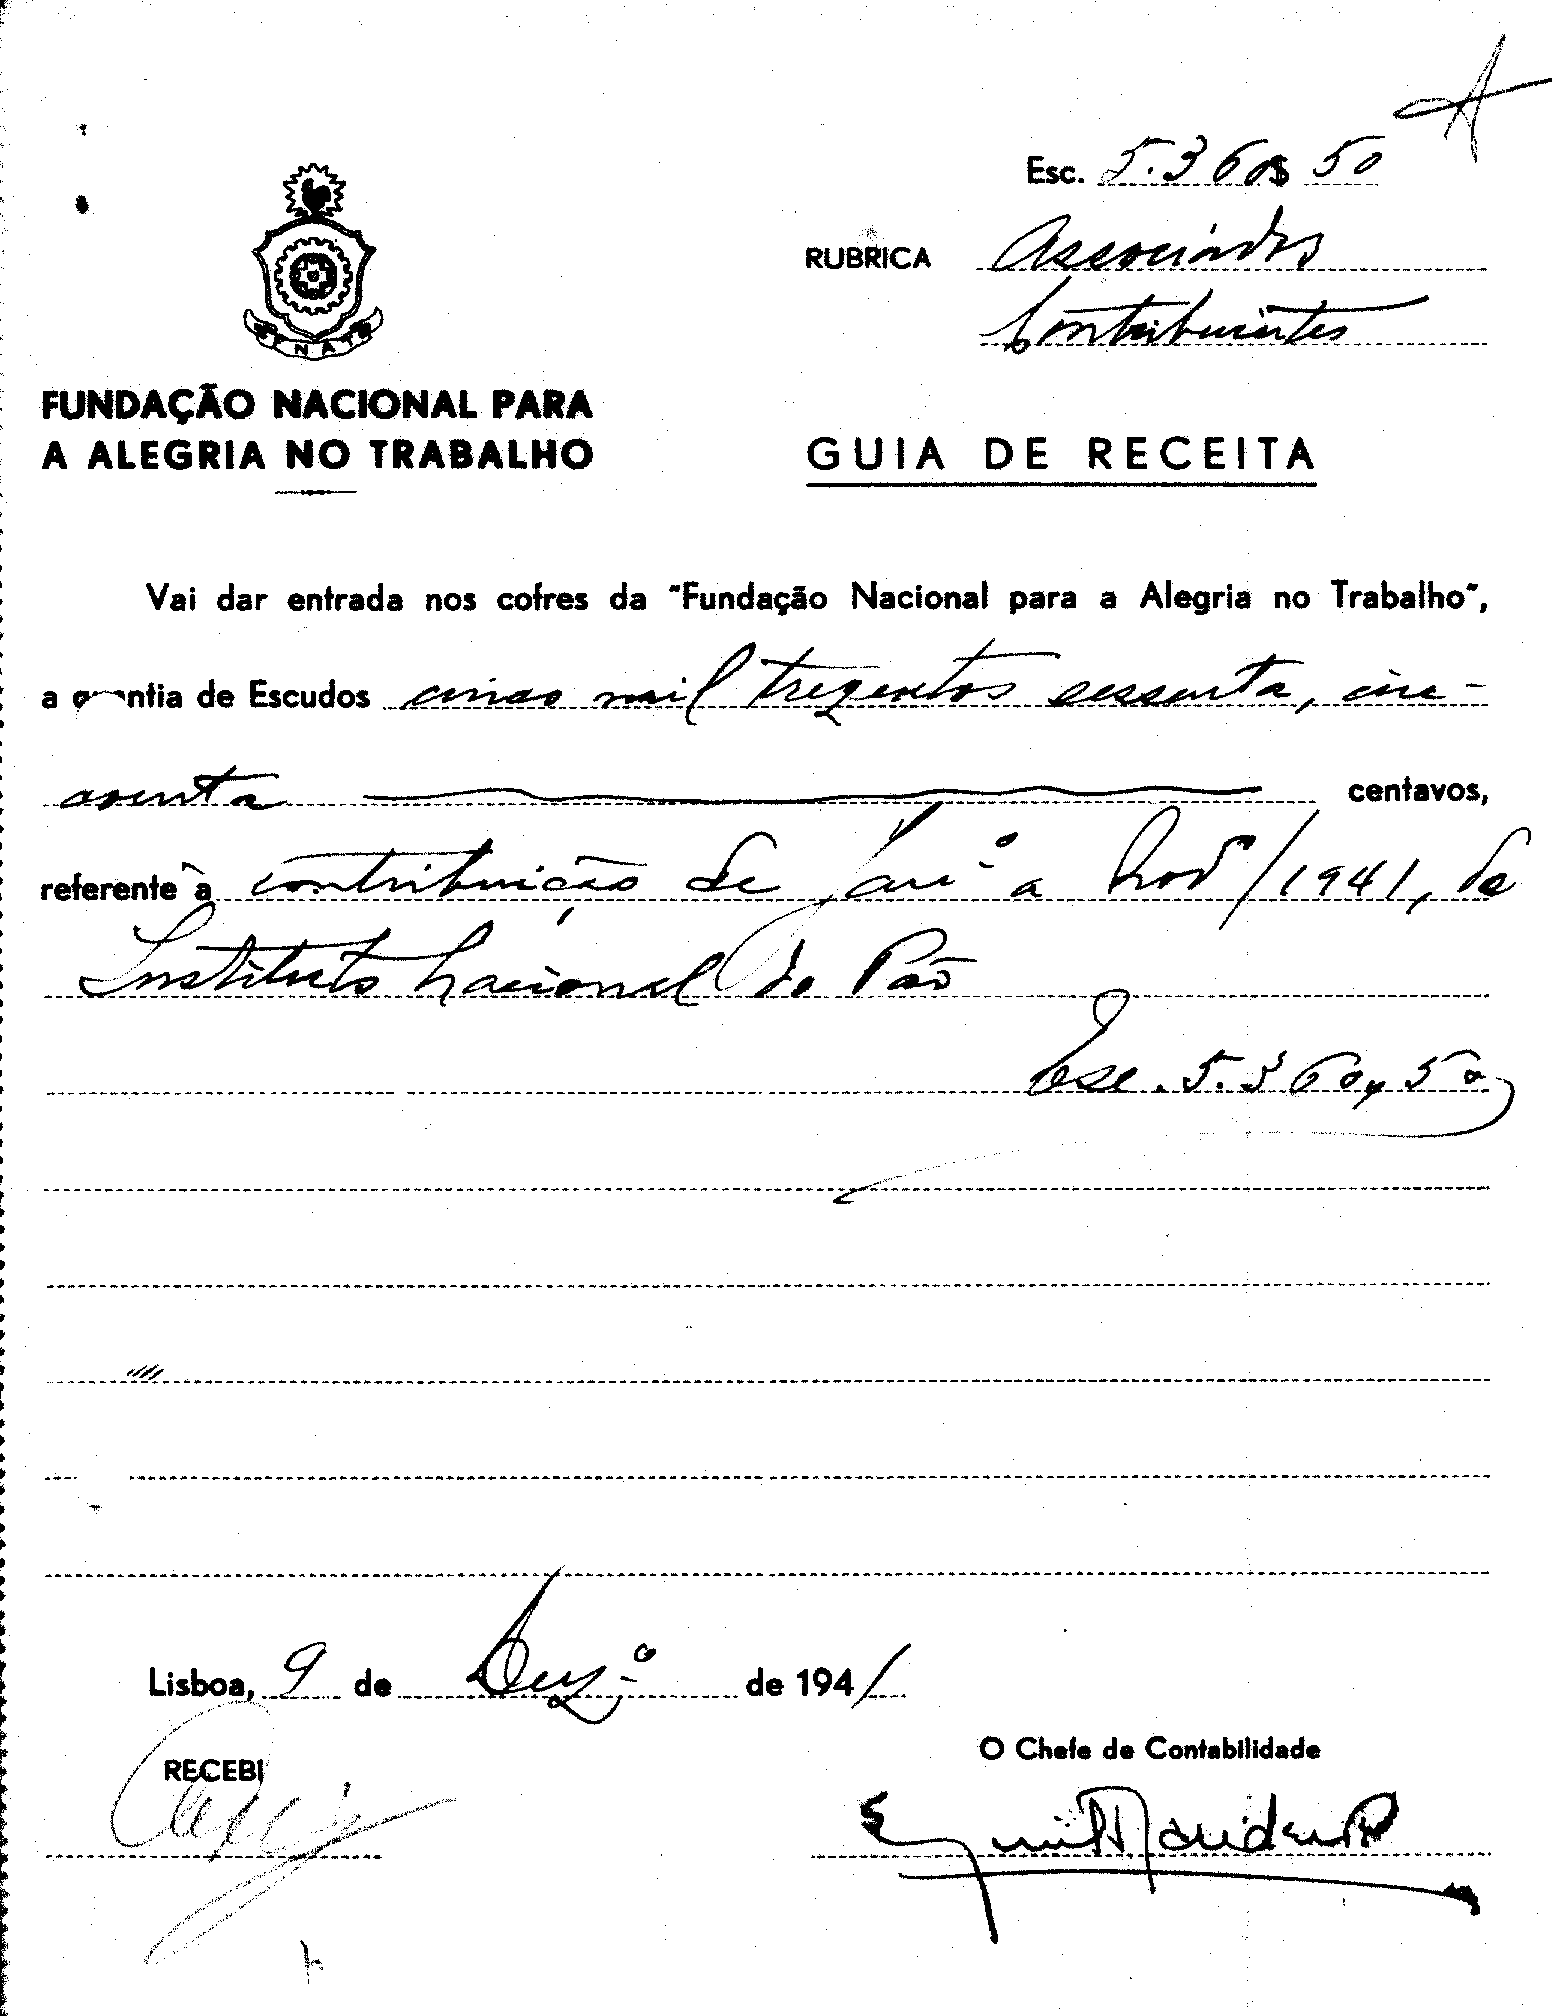 A
Esc. 5.360$50
RUBRICA Associados
Contribuintes
FNAT
FUNDAÇÃO NACIONAL PARA
A ALEGRIA NO TRABALHO
GUIA DE RECEITA
Vai dar entrada nos cofres da "Fundação Nacional para a Alegria no Trabalho",
a quantia de Escudos cinco mil trezentos sessenta, cin-
coenta centavos,
referente à contribuição de Janº a Novº/1941, do
Instituto Nacional do Pão
Esc. 5.360,50
Lisboa, 9 de Dezº de 1941
RECEBI
O Chefe de Contabilidade